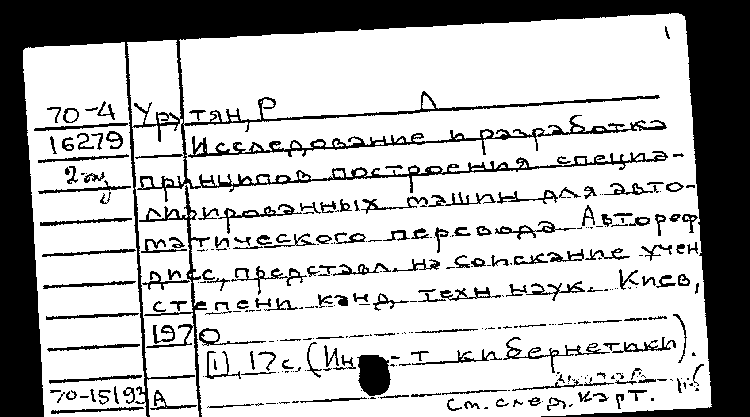 1
70-4 Урутян, Р Л
16279 Исследование и разработка
2 экз принципов построения специа-
лизированных машин для авто-
матического перевода. Автореф
дисс, представл. на соискание учен
степени канд. техн. наук. Киев,
1970.
[1], 17 с. (Ин-т кибернетики).
70-15193 А см. след. карт.